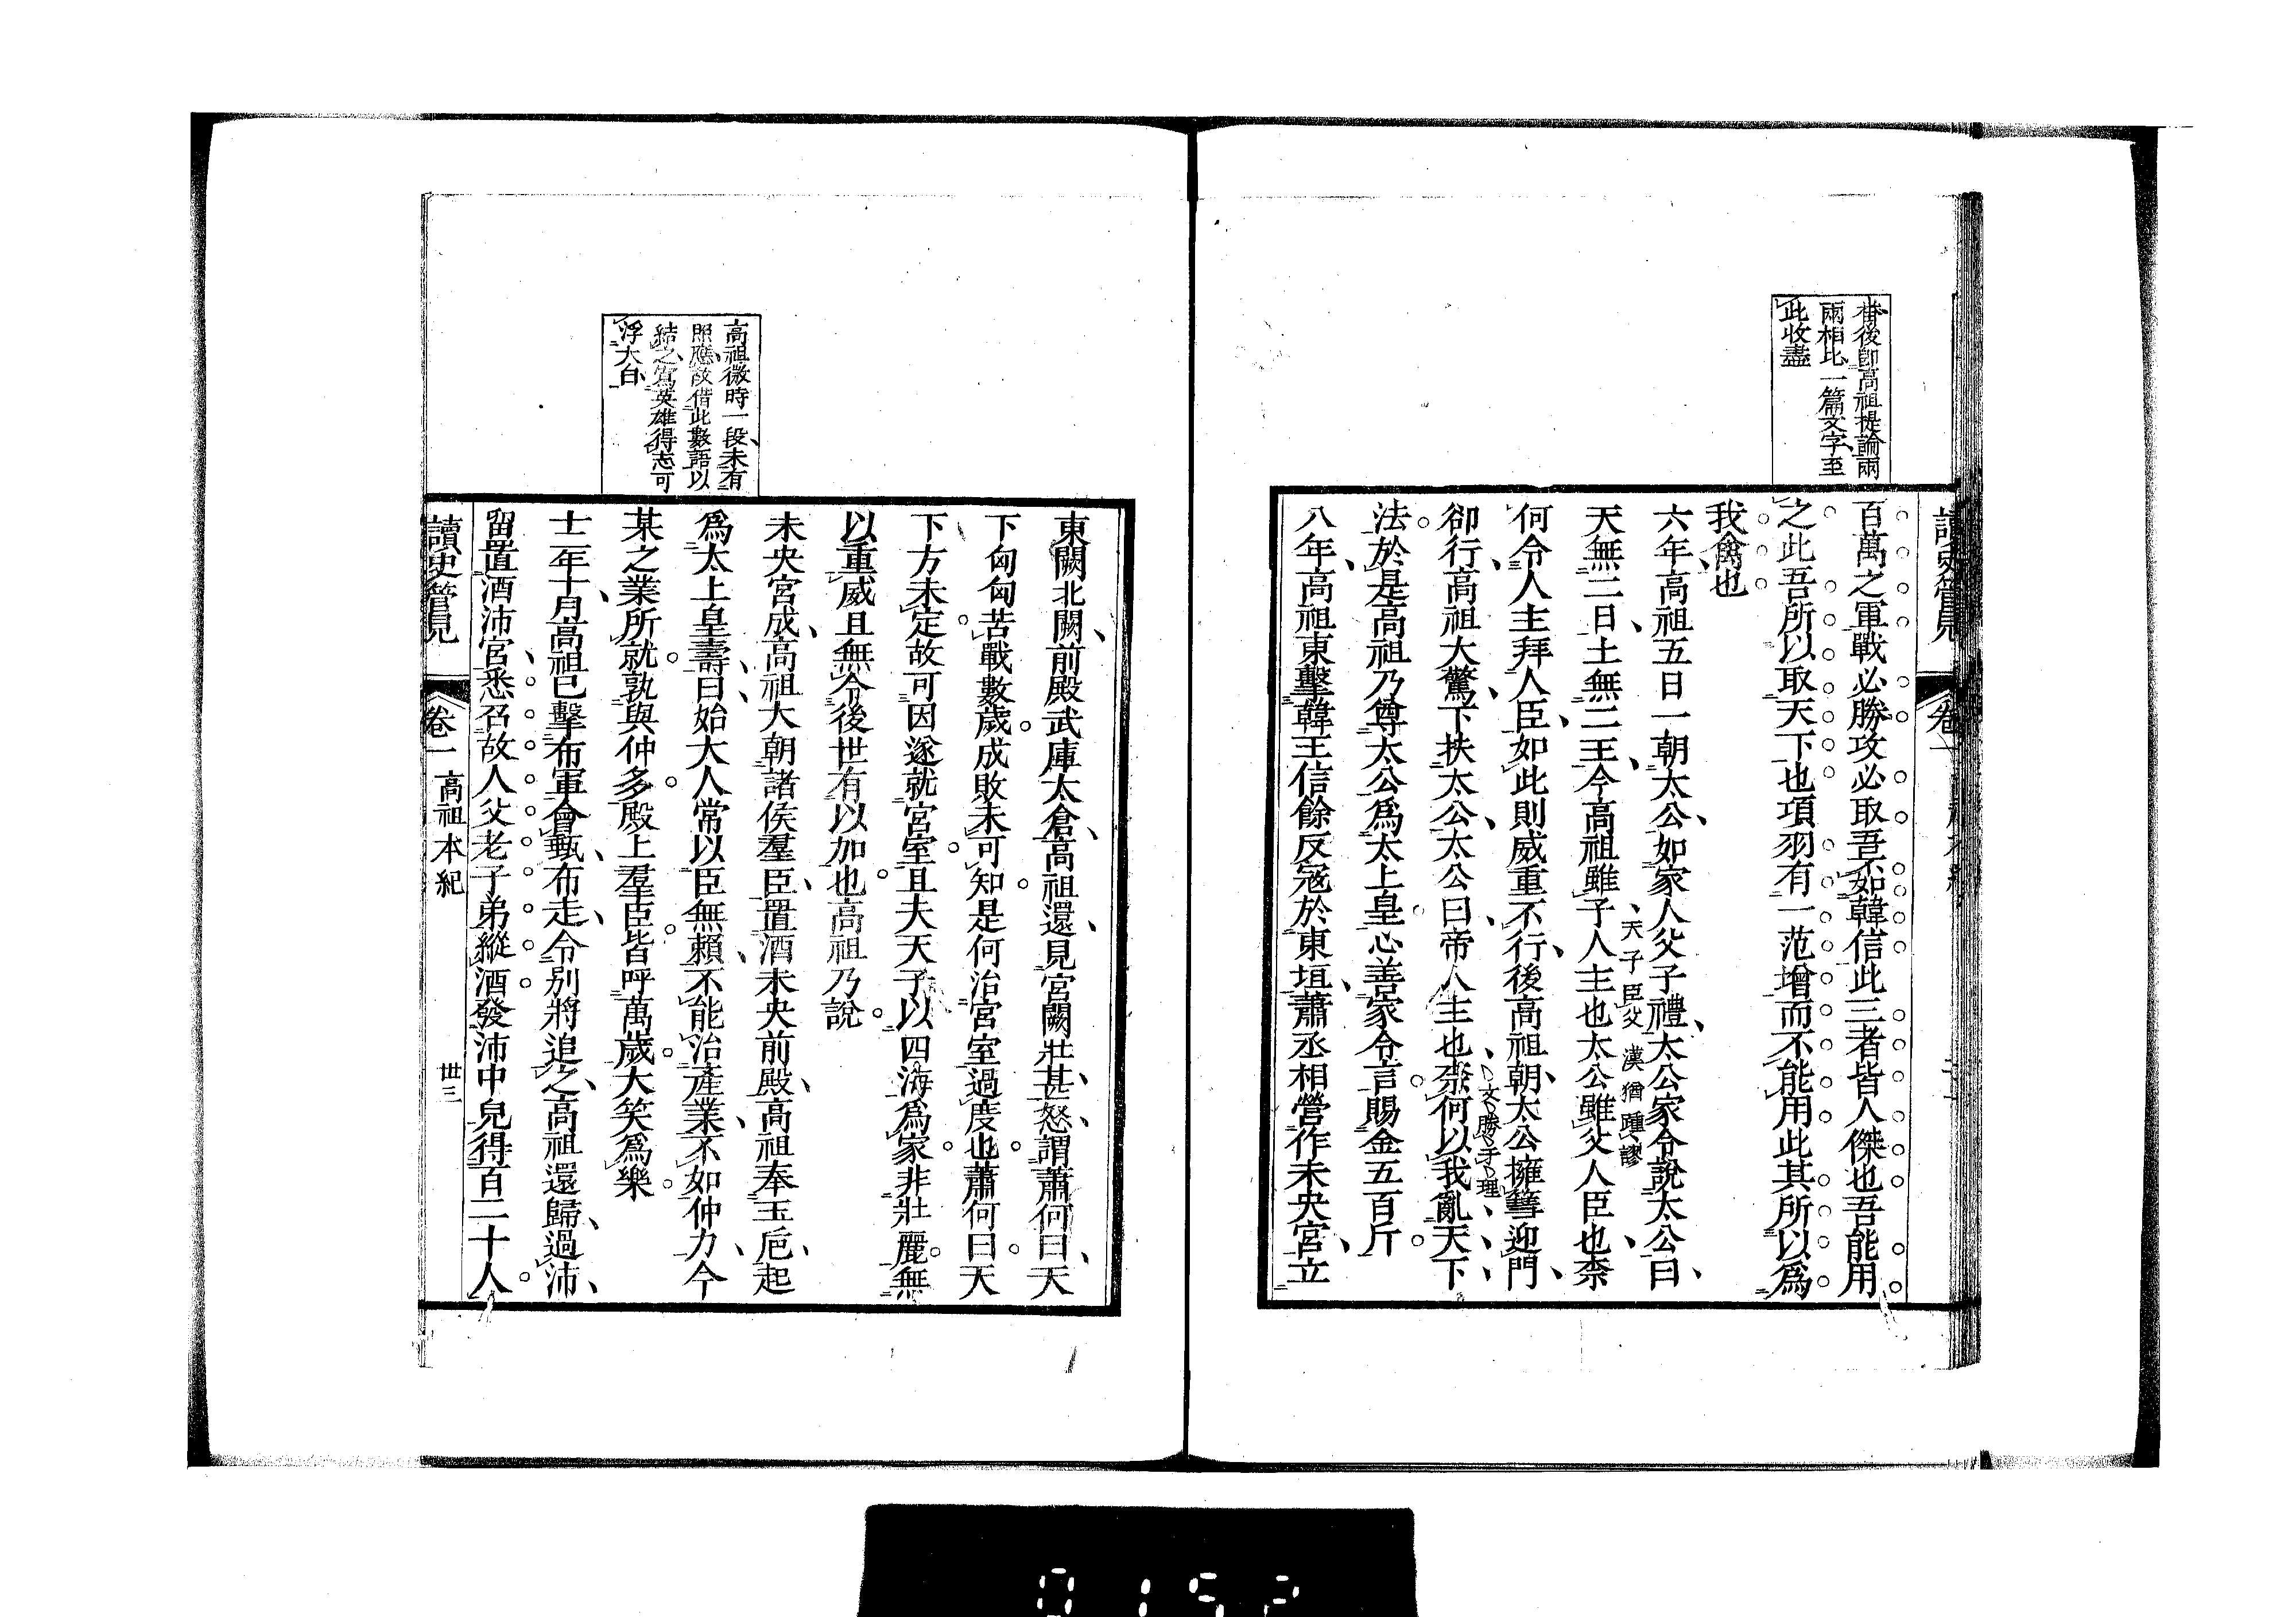 讀史管見
卷一
𤲞後卽高祖提論兩
兩相比一篇文字至
此收盡
百萬之軍戰必勝攻必取吾不如韓信此三者皆人傑也吾能用
之此吾所以取天下也項羽有一范增而不能用此其所以爲
我禽也
六年高祖五日一朝太公如家人父子禮太公家令說太公曰
天子臣父 漢猶踵謬
天無二日土無二王今高祖雖子人主也太公雖父人臣也柰
何令人主拜人臣如此則威重不行後高祖朝太公擁篲迎門
文勝于理
卻行高祖大驚下扶太公太公曰帝人主也柰何以我亂天下
法於是高祖乃尊太公爲太上皇心善家令言賜金五百斤
八年高祖東擊韓王信餘反寇於東垣蕭丞相營作未央宮立
高祖微時一段未有
照應故借此數語以
結之寫英雄得志可
浮大白
東闕北闕前殿武庫太倉高祖還見宮闕壯甚怒謂蕭何曰天
下匈匈苦戰數歲成敗未可知是何治宮室過度也蕭何曰天
下方未定故可因遂就宮室且夫天子以四海爲家非壯麗無
以重威且無令後世有以加也高祖乃說
未央宮成高祖大朝諸侯羣臣置酒未央前殿高祖奉玉巵起
爲太上皇壽曰始大人常以臣無賴不能治產業不如仲力今
某之業所就孰與仲多殿上羣臣皆呼萬歲大笑爲樂
十二年十月高祖已擊布軍會甀布走令別將追之高祖還歸過沛
留置酒沛宮悉召故人父老子弟縱酒發沛中兒得百二十人
讀史管見
卷一 高祖本紀
卅三
0152